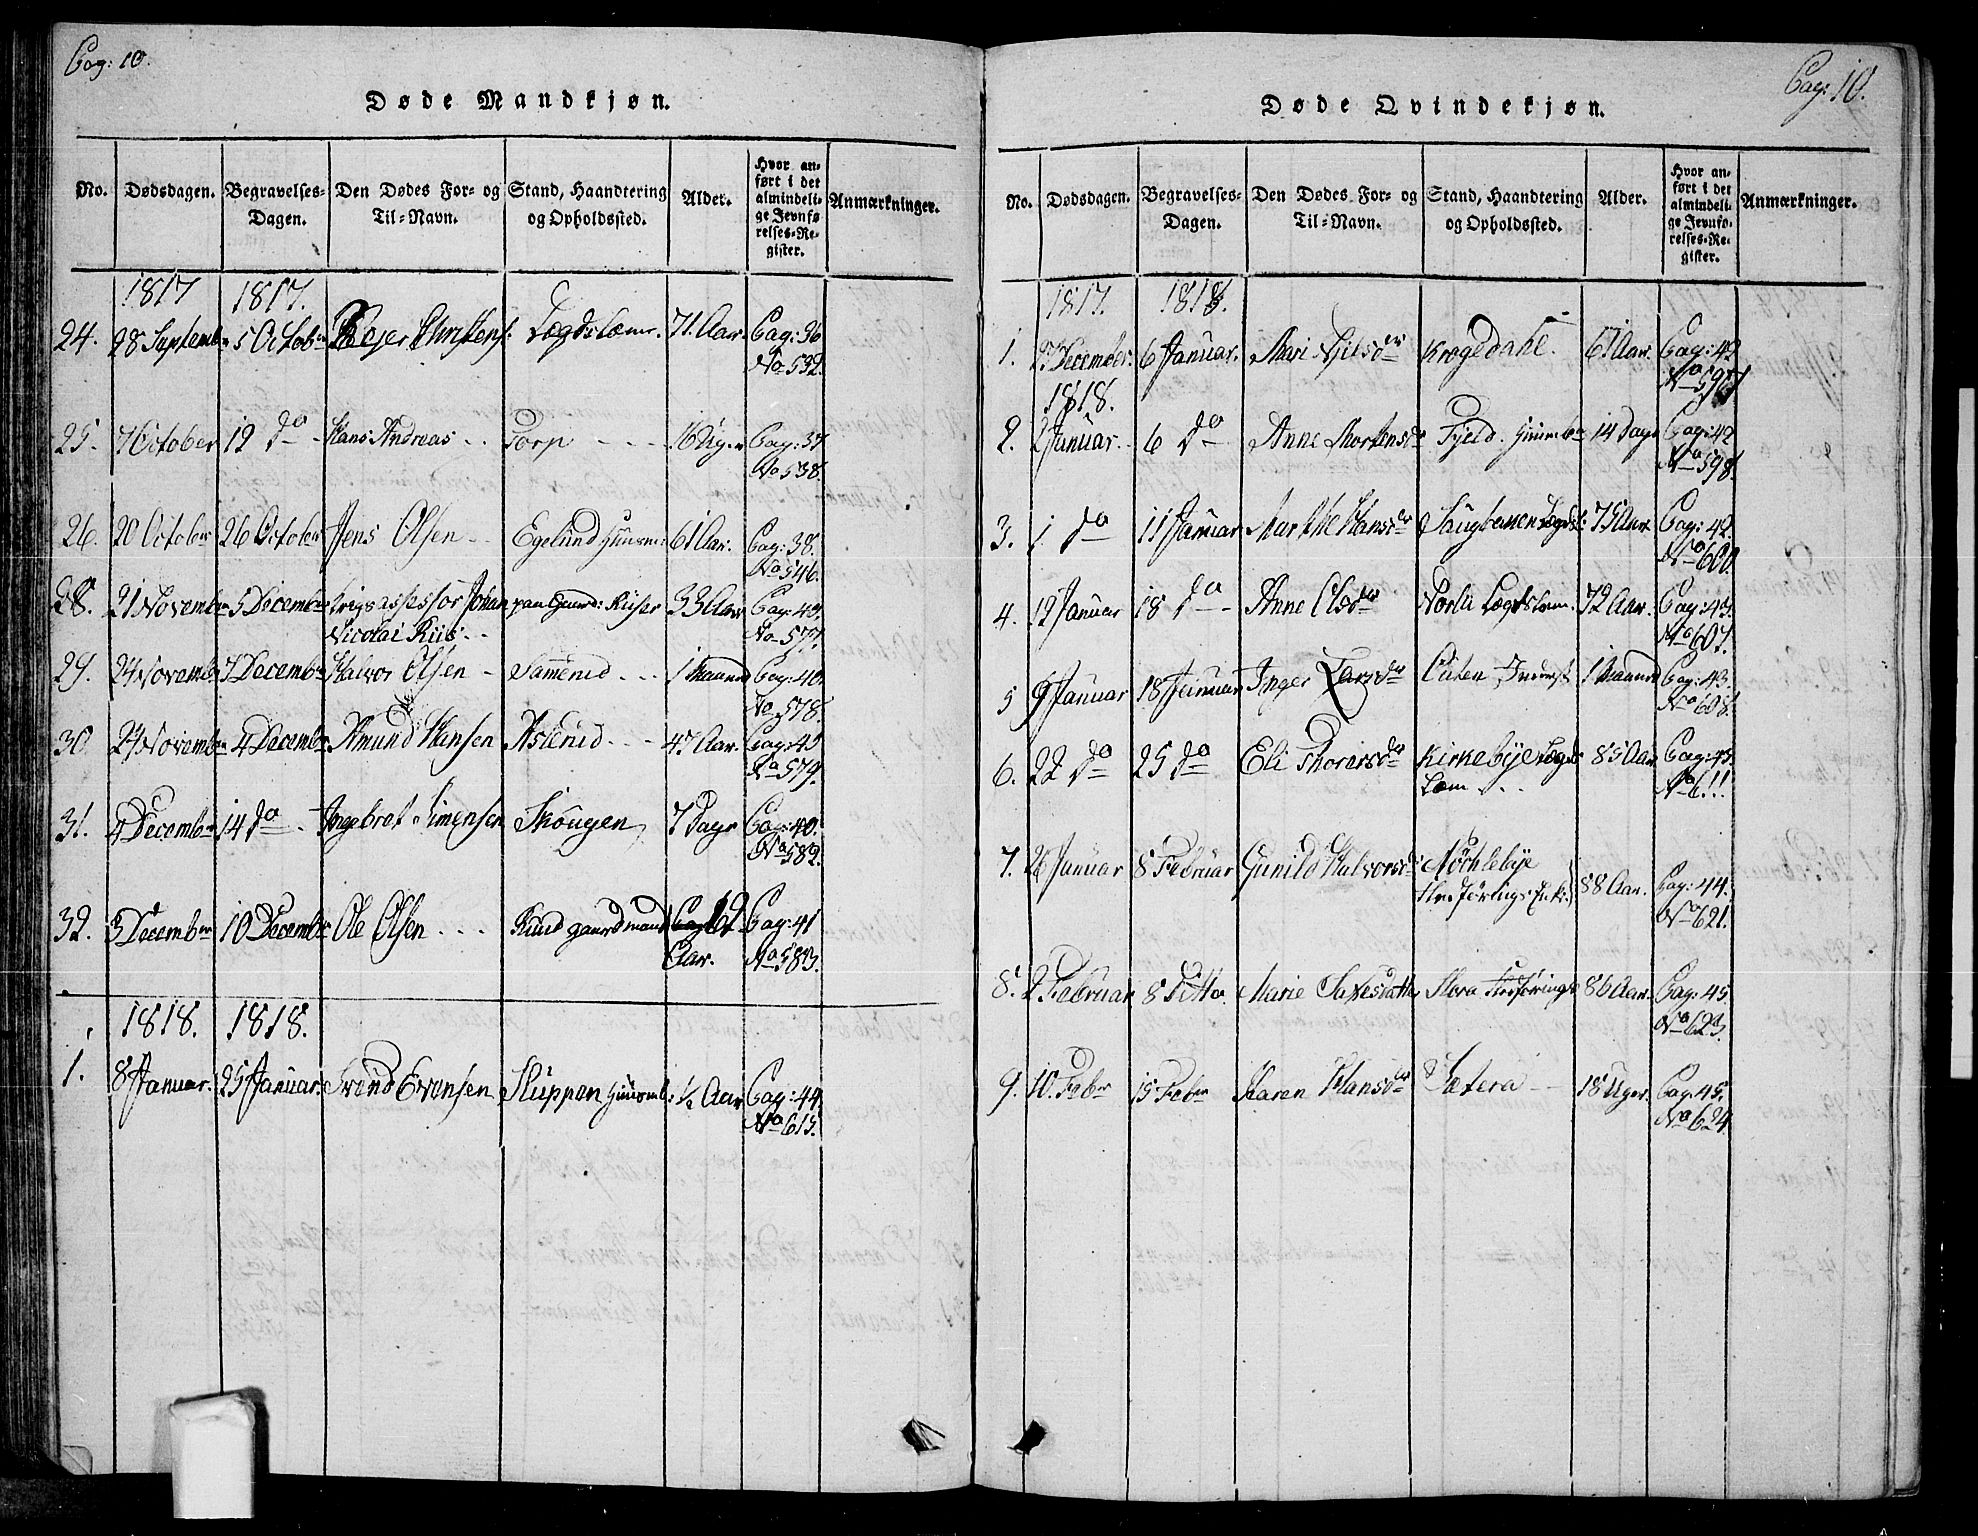 Pag: 10.
Døde Mandkjøn.
No. Dødsdagen. Begravelses-Dagen. Den Dødes For- og Til-Navn. Stand, Haandtering og Opholdssted. Alder. Hvor anført i det almindelige Jevnførelses-Register. Anmærkninger.
1817 1817.
24. 28 Septembr 5 Octobr Christens: Lægdslem. 71 Aar. Pag: 36
No 532.
25. 7 October 12 do Hans Andreas Torp 16 Ug. Pag: 37
No 538.
26. 20 Octobr 26 Octobr Jens Olsen Egelund Huusm: 61 Aar. Pag: 38.
No 546.
28. 21 Novembr 5 Decembr Krigsassessor Johan Riiser 33 Aar Pag: 40.
Nicolai Riis. No 577.
29. 24 Novembr 7 Decembr Halvor Olsen 1 Maaned Pag: 40.
No 578.
30. 24 Novembr 4 Decembr Amund Hansen Askerud 47 Aar. Pag: 40
No 579.
31. 4 Decembr 14 do Ingebret Simensen Skougen 7 Dage Pag: 40.
No 582.
32. 3 Decembr 10 Decembr Ole Olsen Rund gaardmand 62 Pag: 41
Aar. No 583.
1818. 1818.
1. 8 Januar. 25 Januar. Svend Evensen Sluppen Huusm: ½ Aar Pag: 44.
No 615.
Pag: 10.
Døde Qvindekjøn.
No. Dødsdagen. Begravelses-Dagen. Den Dødes For- og Til-Navn. Stand, Haandtering og Opholdssted. Alder. Hvor anført i det almindelige Jevnførelses-Register. Anmærkninger.
1817. 1818.
1. December. 6 Januar. Mari Krogedahl. 61 Aar. Pag: 42
No 597
1818.
2. 2 Januar. 6 do Anne Mortensdr Fjeld. Huusm 14 Dage Pag: 42
No 598
3. 1. do 11 Januar Marthe Hansdr Haugbanen Lægdsl: 75 Aar. Pag: 42.
No 600.
4. 12 Januar 18 do Anne Olsdr Lægdslem. 72 Aar. Pag: 43.
No 607.
5 9 Januar 18 Januar Inger Larsdr Inderst 1 Maaned Pag: 43.
No 608.
6. 22 do 25 do Eli Thorersdr Kirkebye Lægds 85 Aar Pag: 43.
Lem No 611
7. 26 Januar 8 Februar Gunild Halvorsd: Nøchlebye
Huusførlings Enke. 88 Aar. Pag: 44.
No 621.
8. 2 Februar 8 Ditto. Marie 86 Aar. Pag: 45
No 623.
9. 10. Febr 15 Febr Karen Hansdr Sætera 18 Uger. Pag: 45.
No 624.